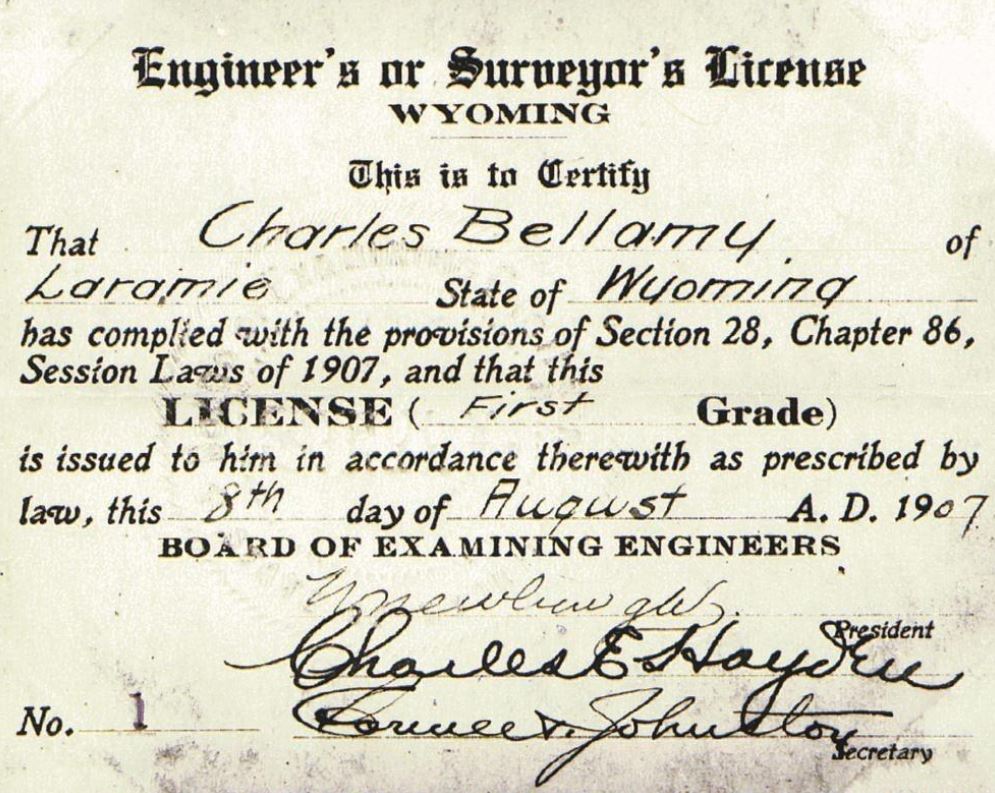 Engineer's or Surveyor's License
WYOMING
This is to Certify
That Charles Bellamy of
Laramie State of Wyoming
has complied with the provisions of Section 28, Chapter 86,
Session Laws of 1907, and that this
LICENSE ( First Grade)
is issued to him in accordance therewith as prescribed by
law, this 8th day of August A. D. 1907
BOARD OF EXAMINING ENGINEERS
President
Charles E Hayden
No. 1 Johnston
Secretary